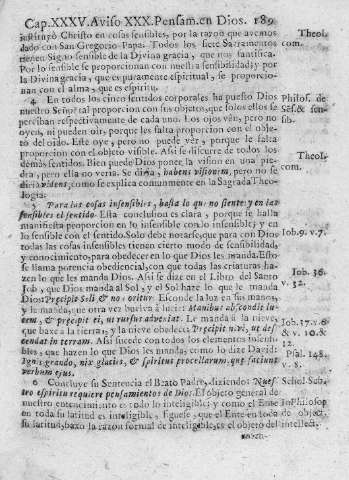 Cap.XXXV.Aviso XXX.Pensam.en Dios. 189
instituyò Christo en cosas sensibles, por la razon que avemos
dado con San Gregorio Papa. Todos los siete Sacramentos
tienen Signo sensible de la Divina gracia, que nos santifica.
Por lo sensible se proporcionan con nuestra sensibilidad; y por
la Divina gracia, que es puramente espiritual, se proporcio-
nan con el alma, que es espiritu.
4 En todos los cinco sentidos corporales ha puesto Dios
nuestro Señor tal proporcion con sus objetos, que solos ellos se
perciban respectivamente de cada uno. Los ojos vèn, pero no
oyen, ni pueden oir, porque les falta proporcion con el obje-
to del oido. Este oye, pero no puede vèr, porque le falta
proporcion con el objeto visible. Assi se discurre de todos los
demàs sentidos. Bien puede Dios poner la vision en una pie-
dra, pero ella no verìa. Se diria, habens visionem, pero no se
diria videns, como se explica comunmente en la Sagrada Theo-
logia.
5 Para las cosas insensibles, basta lo que no siente; y en las
sensibles el sentido. Esta conclusion es clara, porque se halla
manifiesta proporcion en lo insensible con lo insensible; y en
lo sensible con el sentido. Solo debe notarse, que para con Dios
todas las cosas insensibles tienen cierto modo de sensibilidad,
y conocimiento, para obedecer en lo que Dios les manda. Esto
se llama potencia obediencial, con que todas las criaturas ha-
zen lo que les manda Dios. Assi se dize en el Libro del Santo
Job, que Dios manda al Sol, y el Sol haze lo que le manda
Dios: Præcipit Soli & non oritur. Esconde la luz en sus manos,
y le manda, que otra vez buelva à lucir: Manibus abscondit lu-
cem, & præcipit ei, ut rursus adveniat. Le manda à la nieve,
que baxe à la tierra, y la nieve obedece: Præcipit nivi, ut des-
cendat in terram. Assi sucede con todos los elementos insensi-
bles, que hazen lo que Dios les manda, como lo dize David:
Ignis grando, nix glacies, & spiritus procellarum, quæ faciunt
verbum ejus.
6 Concluye su Sentencia el Beato Padre, diziendo: Nues-
tro espiritu requiere pensamientos de Dios. El objeto general de
nuestro entendimiento es todo lo inteligible; y como el Ente
en toda su latitud es inteligible, siguese, que el Ente en toda
su latitud, baxo la razon formal de inteligible, es el objeto del
enten-
Theol.
com.
Philos. de
Sẽs. & sen-
sib.
Theol.
com.
Job. 9. v. 7.
Job. 36.
v. 32.
Job. 37. v. 6
& v. 10. &
12.
Psal. 148.
v. 8.
Schol. Sub.
in Philosop
de object.
intellect.